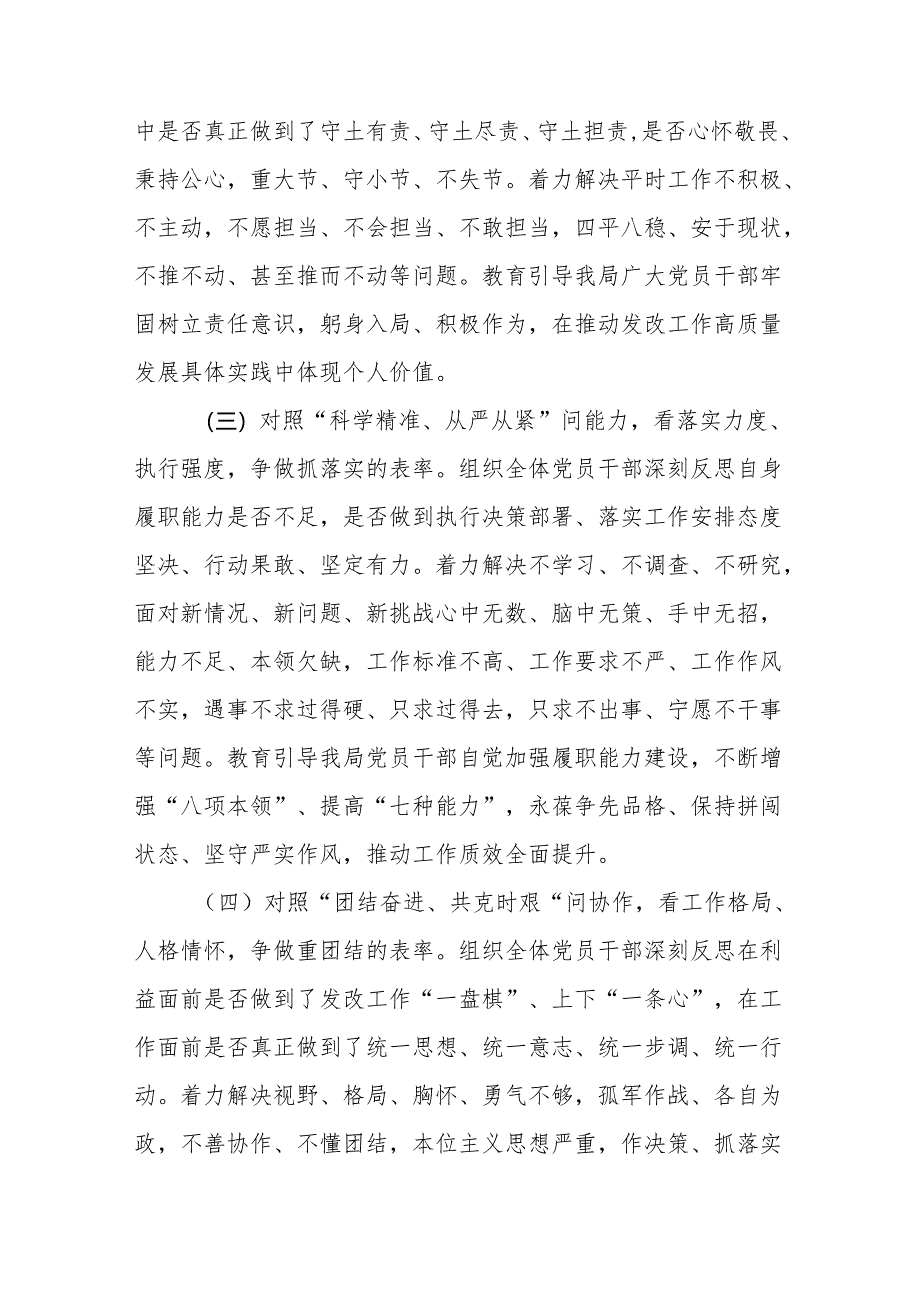 中是否真正做到了守土有责、守土尽责、守土担责,是否心怀敬畏、
秉持公心，重大节、守小节、不失节。着力解决平时工作不积极、
不主动，不愿担当、不会担当、不敢担当，四平八稳、安于现状，
不推不动、甚至推而不动等问题。教育引导我局广大党员干部牢
固树立责任意识，躬身入局、积极作为，在推动发改工作高质量
发展具体实践中体现个人价值。
(三) 对照“科学精准、从严从紧”问能力，看落实力度、
执行强度，争做抓落实的表率。组织全体党员干部深刻反思自身
履职能力是否不足，是否做到执行决策部署、落实工作安排态度
坚决、行动果敢、坚定有力。着力解决不学习、不调查、不研究，
面对新情况、新问题、新挑战心中无数、脑中无策、手中无招，
能力不足、本领欠缺，工作标准不高、工作要求不严、工作作风
不实，遇事不求过得硬、只求过得去，只求不出事、宁愿不干事
等问题。教育引导我局党员干部自觉加强履职能力建设，不断增
强“八项本领”、提高“七种能力”，永葆争先品格、保持拼闯
状态、坚守严实作风，推动工作质效全面提升。
（四）对照“团结奋进、共克时艰“问协作，看工作格局、
人格情怀，争做重团结的表率。组织全体党员干部深刻反思在利
益面前是否做到了发改工作“一盘棋”、上下“一条心”，在工
作面前是否真正做到了统一思想、统一意志、统一步调、统一行
动。着力解决视野、格局、胸怀、勇气不够，孤军作战、各自为
政，不善协作、不懂团结，本位主义思想严重，作决策、抓落实